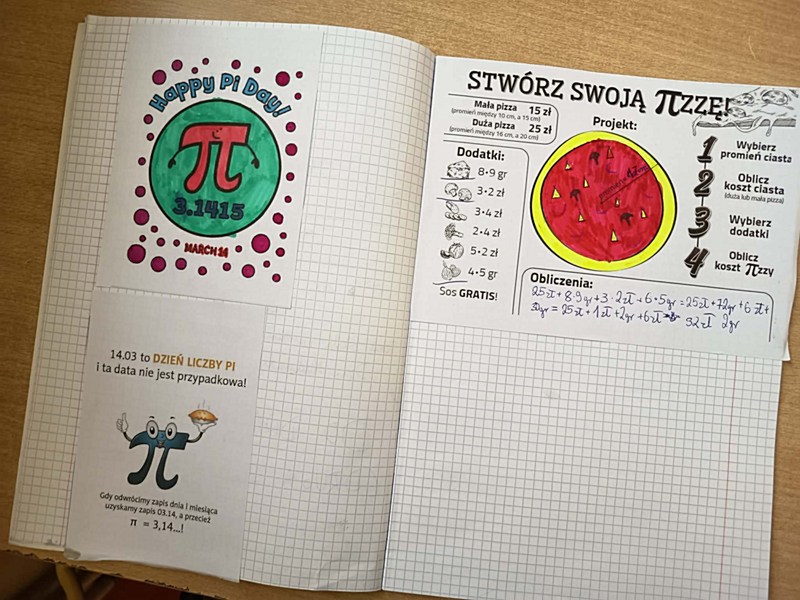 Happy Pi Day!
π
3.1415
MARCH 14
14.03 to DZIEŃ LICZBY PI
i ta data nie jest przypadkowa!
Gdy odwrócimy zapis dnia i miesiąca
uzyskamy zapis 03.14, a przecież
π = 3,14...!
STWÓRZ SWOJĄ πZZĘ!
Mała pizza 15 zł
(promień między 10 cm, a 15 cm)
Duża pizza 25 zł
(promień między 16 cm, a 20 cm)
Dodatki:
8·9 gr
3·2 zł
3·4 zł
2·4 zł
5·2 zł
4·5 gr
Sos GRATIS!
Projekt:
1 Wybierz
promień ciasta
2 Oblicz
koszt ciasta
(duża lub mała pizza)
3 Wybierz
dodatki
4 Oblicz
koszt πzzy
Obliczenia:
25zł + 8·9gr + 3·2zł + 6·5gr = 25zł + 72gr + 6zł +
30gr = 25zł + 1zł + 2gr + 6zł = 32zł 2gr